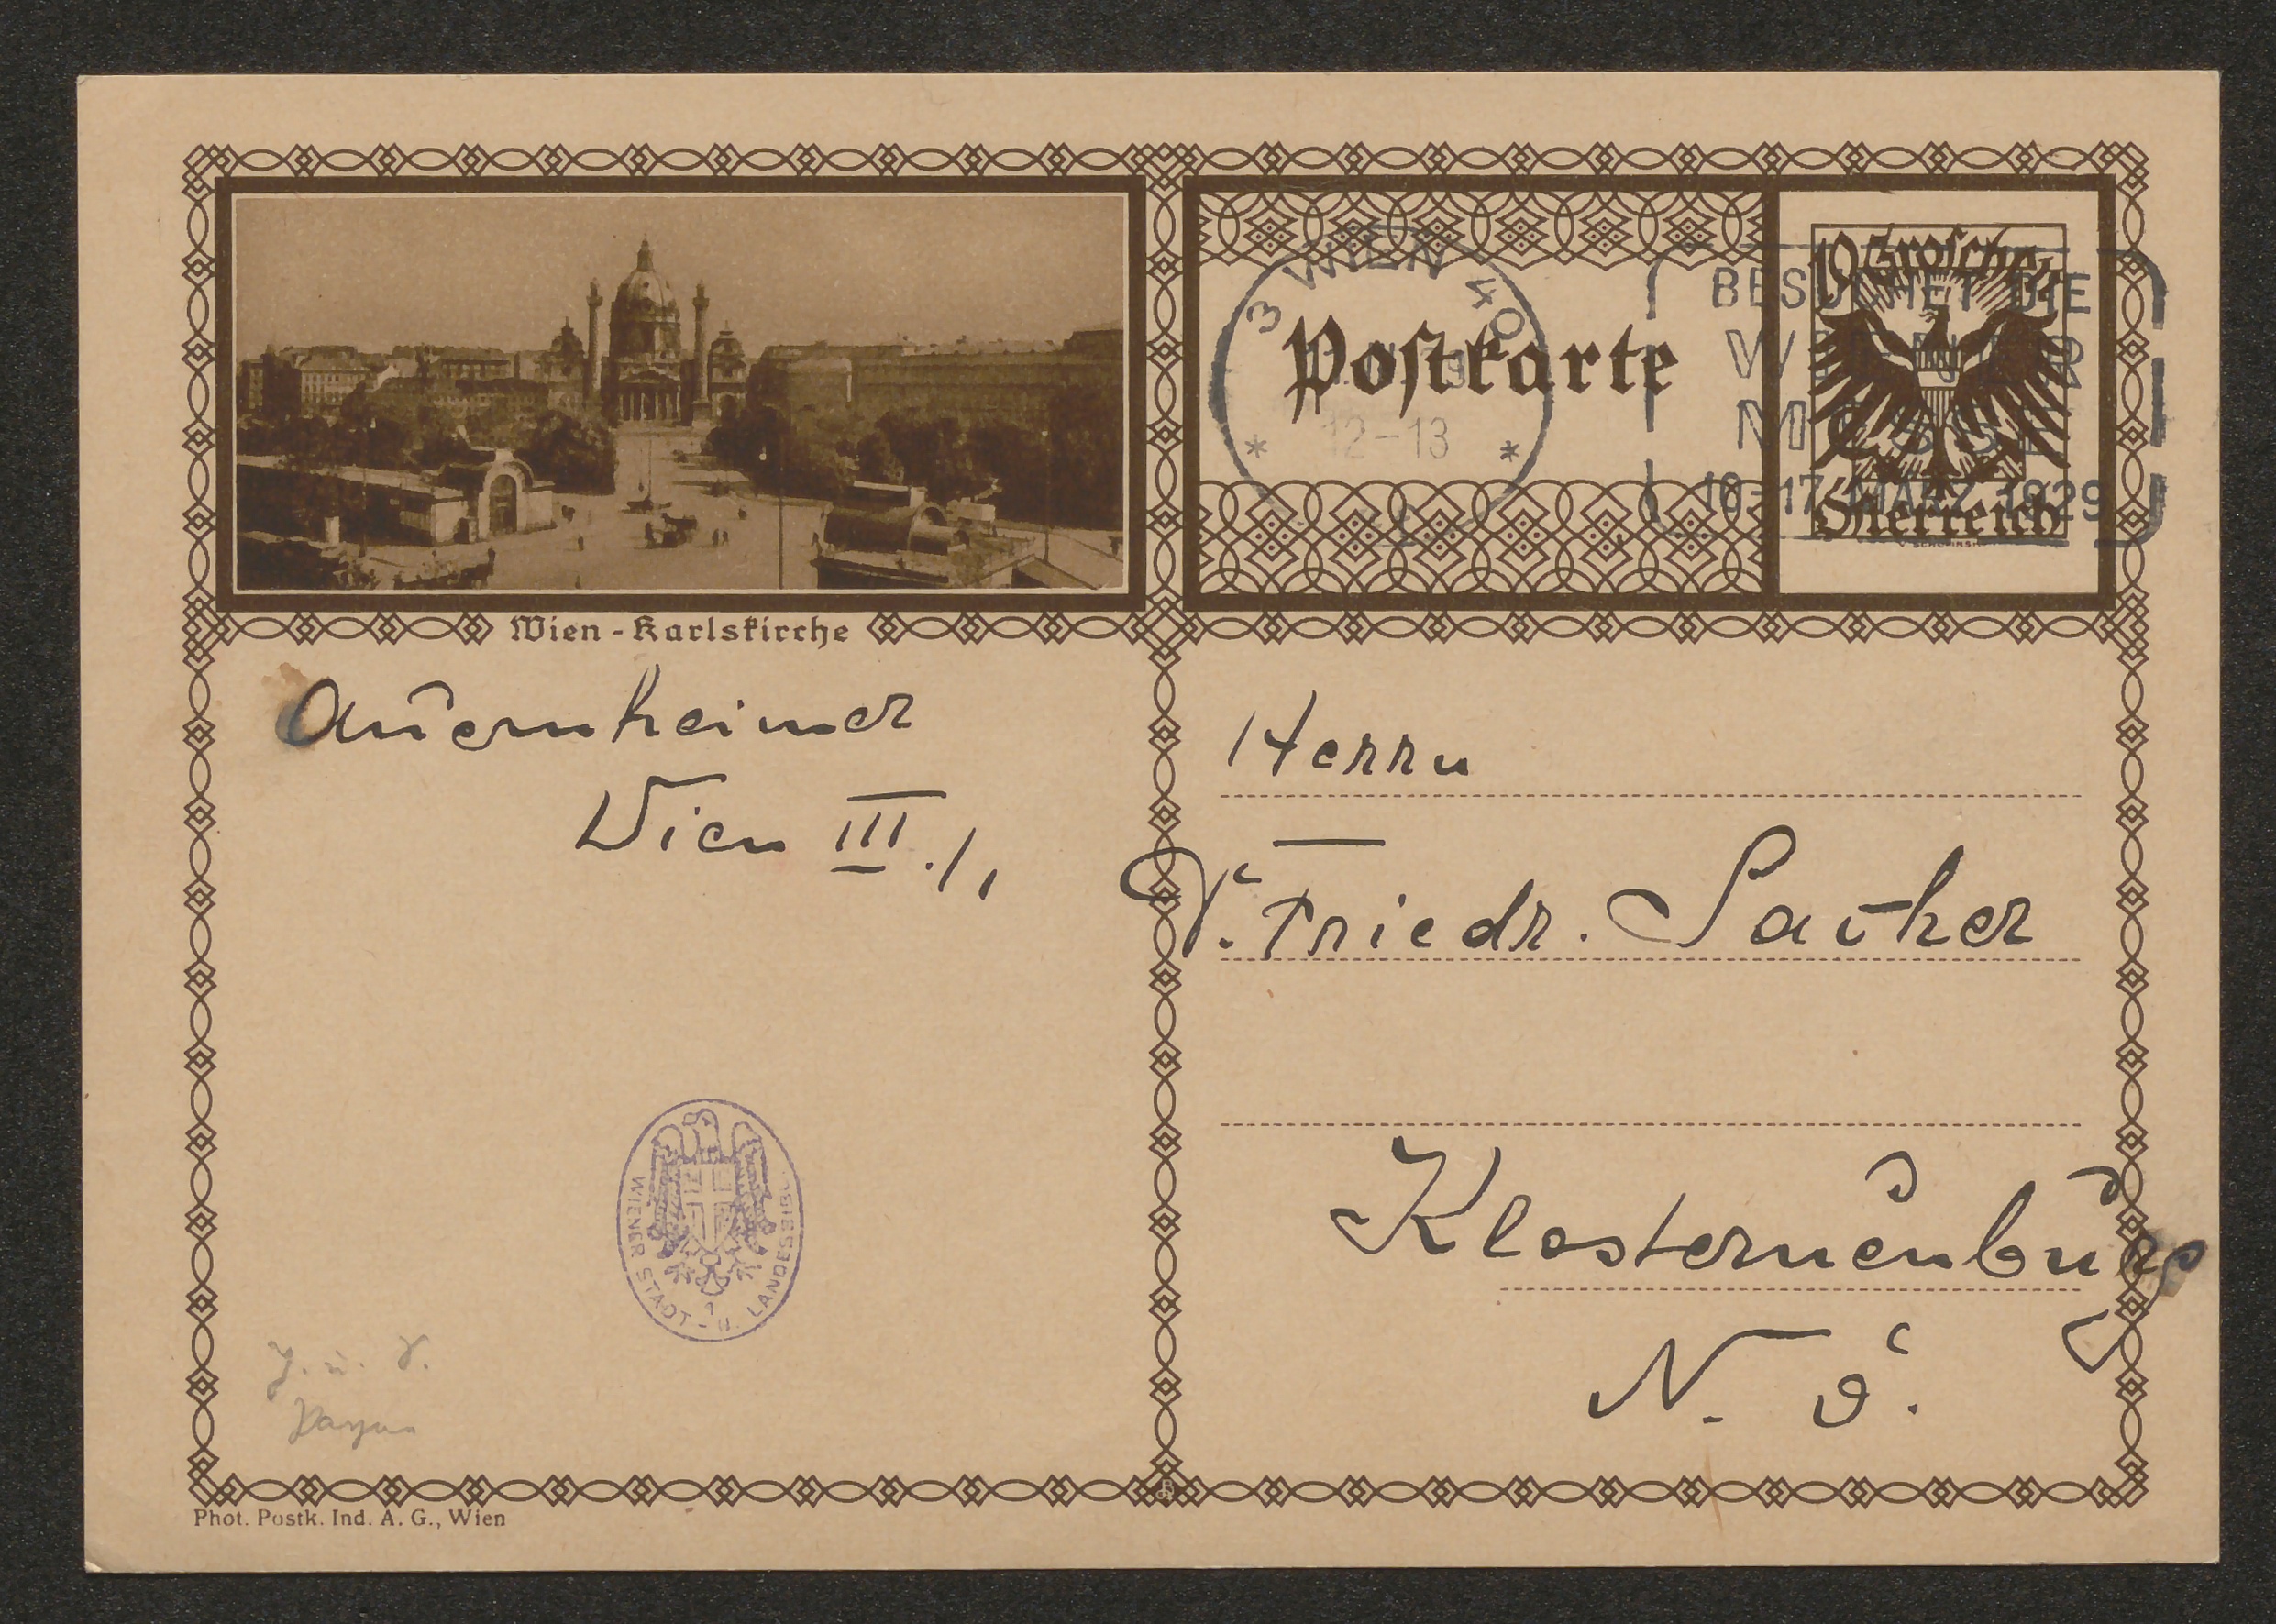 Wien - Karlskirche
Auernheimer
Wien III./1
Postkarte
3 WIEN 40
12-13
* *
BESUCHET DIE
WIENER
MESSE
10-17. MÄRZ 1929
10 Groschen
Österreich
Herrn
Dr. Friedr. Sacher
Klosterneuburg
N. Ö.
WIENER STADT - U. LANDESBIBL.
Phot. Postk. Ind. A. G., Wien